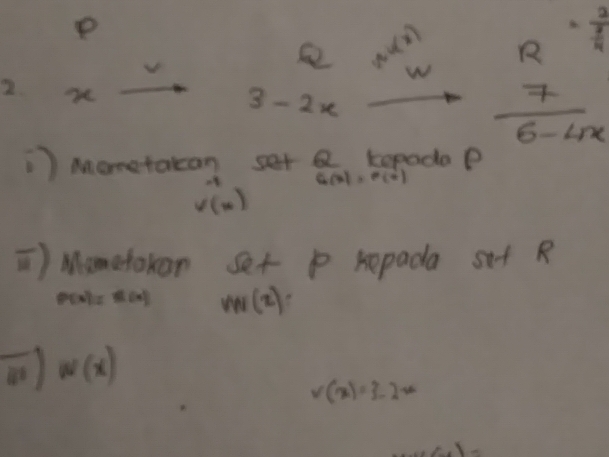 P Q R
2. x v→ 3 - 2x w→ 7/(6-4x)
wv(x)
i) Memetakan set Q kepada P
v(x)
ii) Memetakan set P kepada set R
wv(x)=
iii) w(x)
v(x)=3-2x
wv(x)=